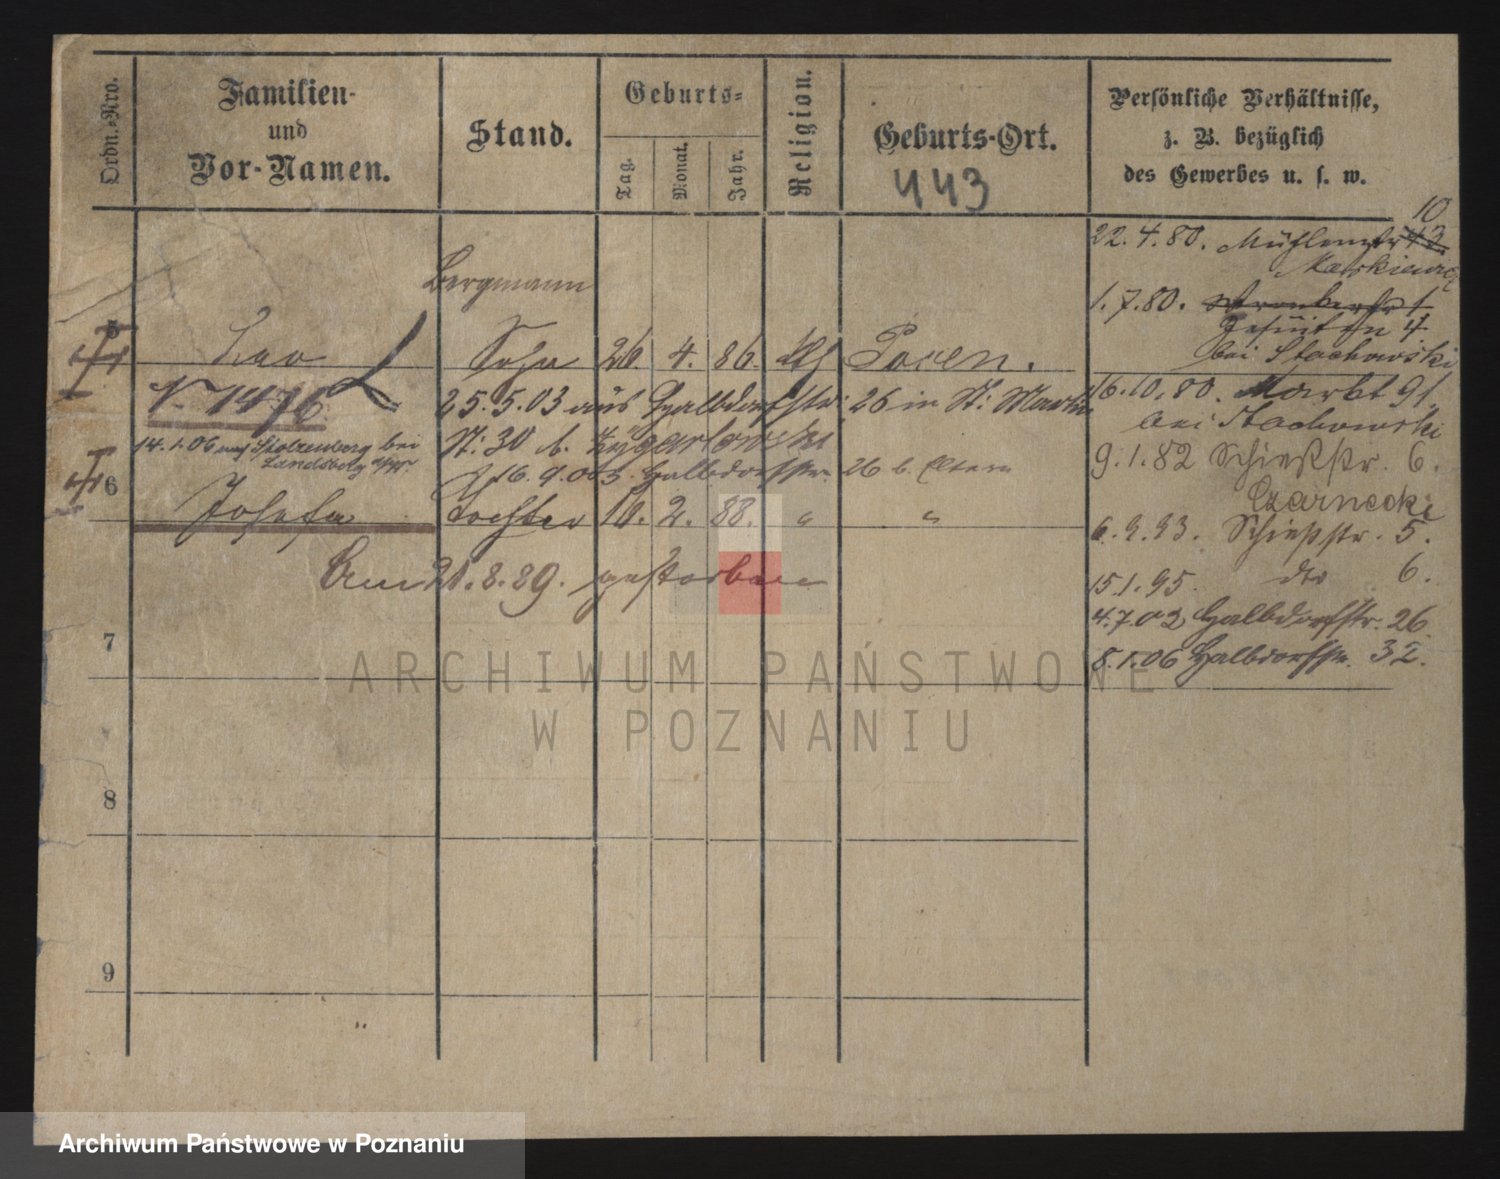 Ordn.-Nro.
Familien-
und
Vor-Namen.
Stand.
Geburts-
Tag.
Monat.
Jahr.
Religion.
Geburts-Ort.
443
Persönliche Verhältnisse,
z. B. bezüglich
des Gewerbes u. s. w.
10
22. 4. 80. Mühlenstr 43
Markiewicz
1. 7. 80. Wronkerstr 1
Jesuitenstr 4
bei Stachowski
Bergmann
5
Leo Sohn 26. 4. 86. kth Posen.
V. 1476
25. 5. 03 aus Halbdorfstr. 26 in St: Martin
St: 30 b.
16. 10. 80. Markt 91.
bei Stachowski
14. 1. 06 nach Stolzenberg bei
Landsberg a/W
16. 9. 03. Halbdorfstr. 26 b. Eltern
9. 1. 82 Schießstr. 6.
Czarnecki
6
Josefa Tochter 10. 2. 88. " "
6. 9. 93. Schießstr. 5.
Am 21. 8. 89. gestorben
15. 1. 95. dto 6.
4. 7. 02 Halbdorfstr. 26
7
8. 1. 06 Halbdorfstr. 32.
ARCHIWUM PAŃSTWOWE
W POZNANIU
8
9
Archiwum Państwowe w Poznaniu